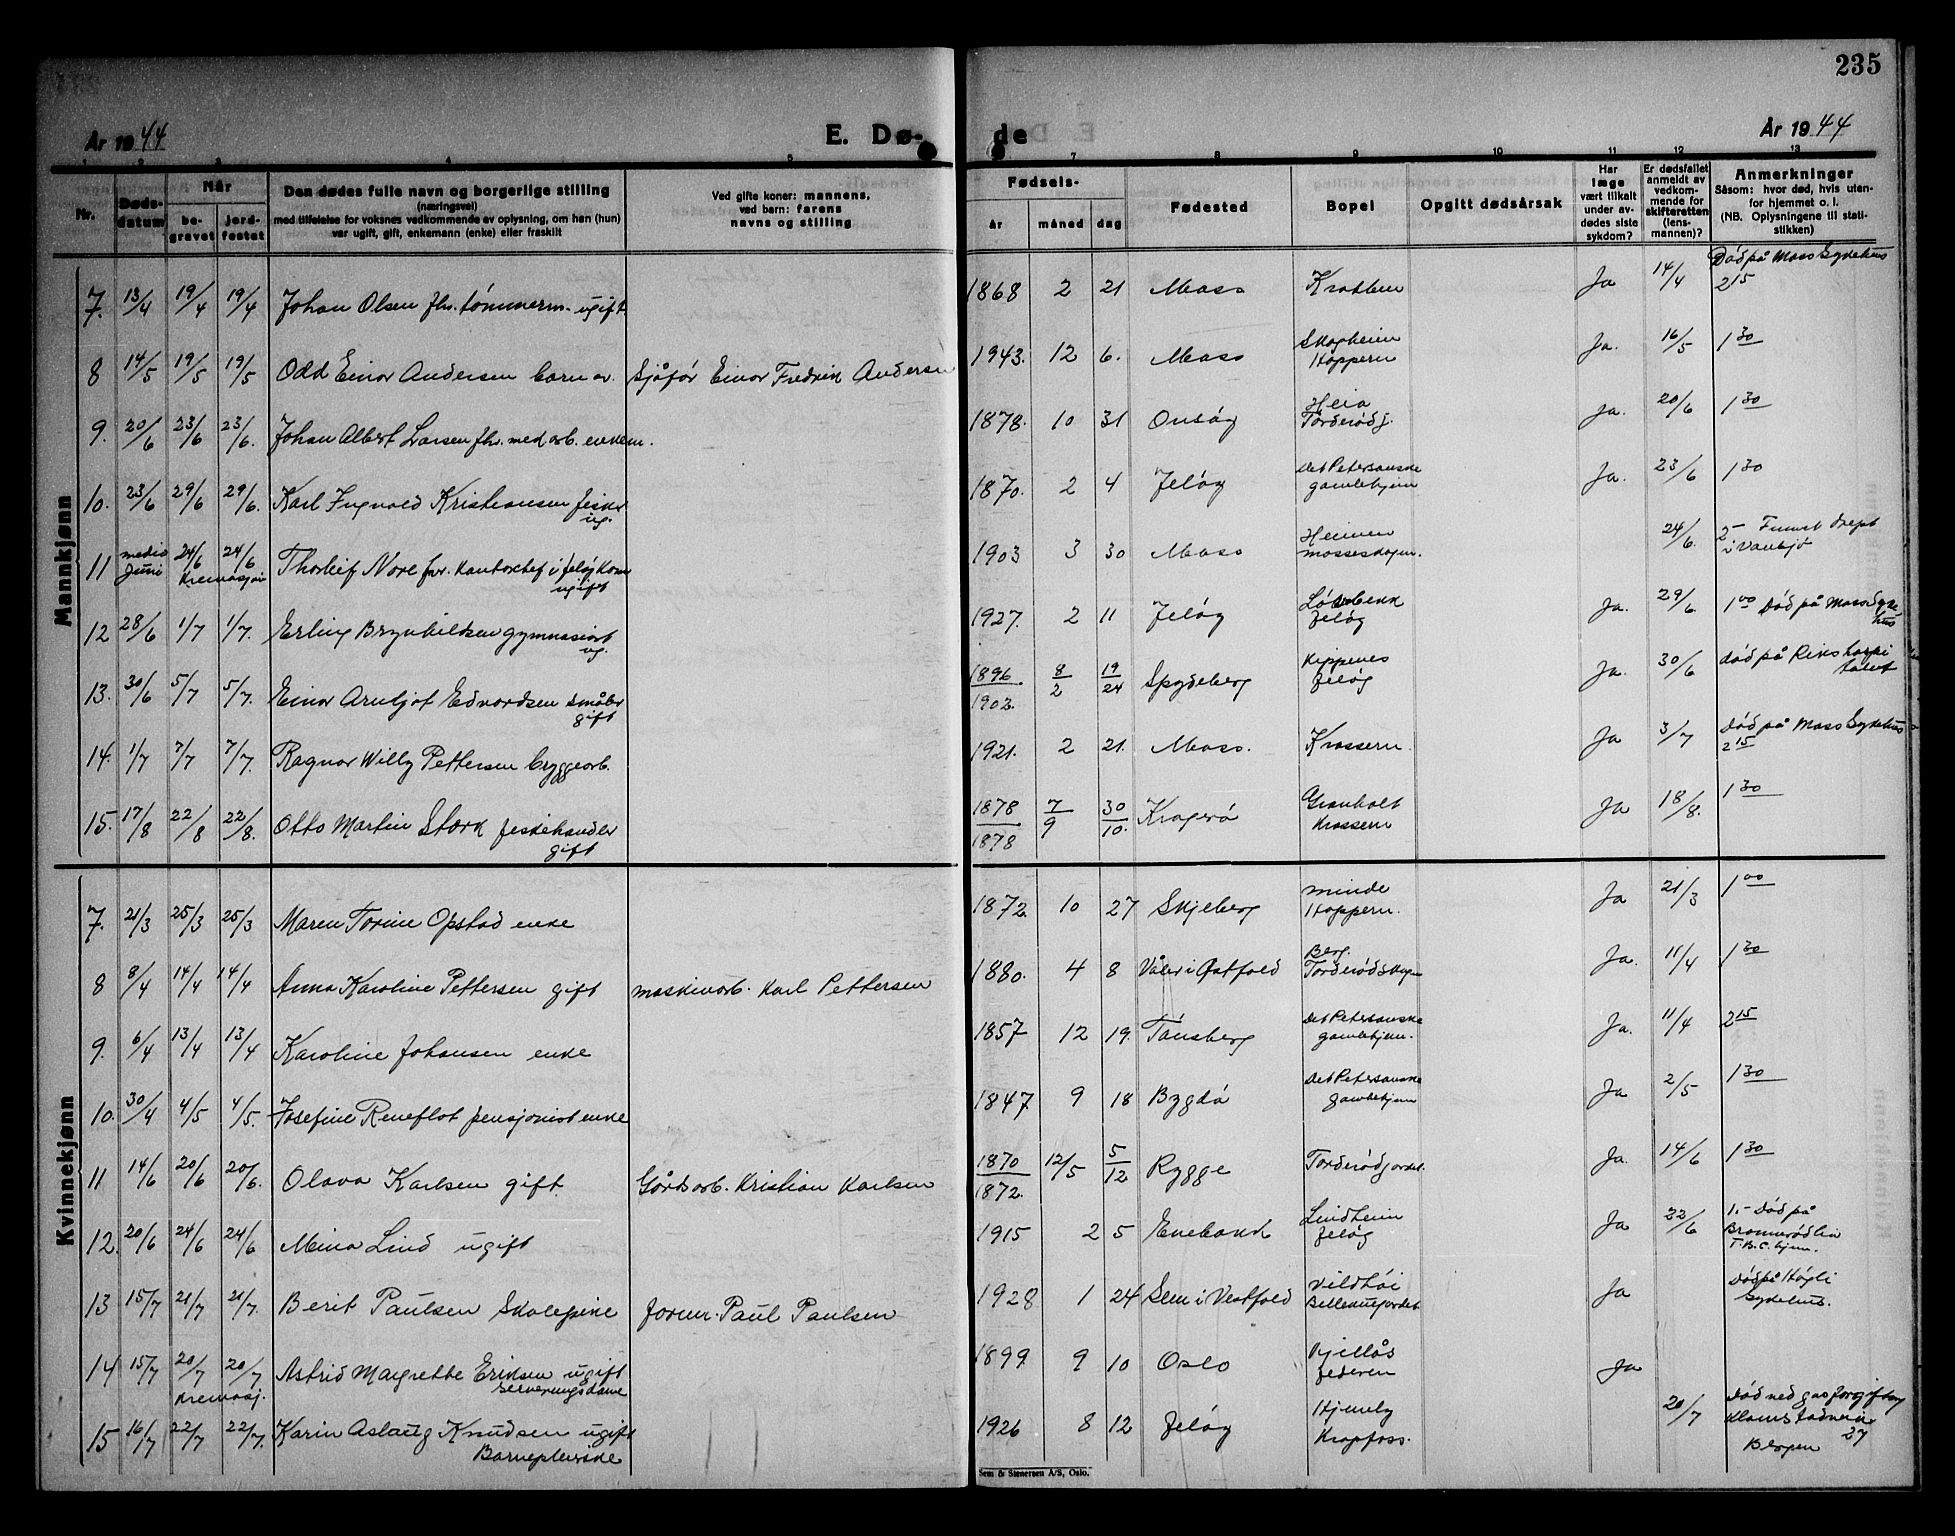 235
År 1944
E. Dø-
de
År 1944
1 2 3 4 5 7 8 9 10 11 12 13
Nr.
Døds-
datum
Når
be-
gravet
jord-
festet
Den dødes fulle navn og borgerlige stilling
(næringsvei)
med tilføielse for voksnes vedkommende av oplysning, om han (hun)
var ugift, gift, enkemann (enke) eller fraskilt
Ved gifte koner: mannens,
ved barn: farens
navns og stilling
Fødsels-
år måned dag
Fødested
Bopel
Opgitt dødsårsak
Har
læge
vært tilkalt
under av-
dødes siste
sykdom?
Er dødsfallet
anmeldt av
vedkom-
mende for
skifteretten
(lens-
mannen)?
Anmerkninger
Såsom: hvor død, hvis uten-
for hjemmet o. l.
(NB. Oplysningene til stati-
stikken)
Mannkjønn
7. 13/4 19/4 19/4 Johan Olsen fhv. tømmerm. ugift 1868 2 21 Moss Ja 14/4 Död på Moss Sykehus
2 15
8 14/5 19/5 19/5 Odd Einar Andersen barn av. Sjåfør Einar Fredrik Andersen 1943. 12 6. Moss Skogheim Ja. 16/5 1 30
Hoppern
9. 20/6 23/6 23/6. Johan Albert Larsen fhv. med arb. enkem. 1878. 10 31 Onsøy Heia Ja. 20/6 1 30
Torderödj.
10. 23/6 29/6 29/6. Karl Ingvald Kristiansen fisker 1870. 2 4 Jeløy Det Petersonske Ja. 23/6 1 30
ug. gamlehjem
11 medio 24/6 24/6 Thorleif Nore fvr. kontorchef i Jeløy Kom 1903 3 30 Moss Heimen 24/6. 2 - Funnet drept
Juni Kremasjon ugift Mosseskogen. i Vansjø
12 28/6 1/7 1/7. Erling Brynhildsen gymnasiast 1927. 2 11 Jeløy Ja. 29/6 1 00 Död på Moss Syke
ug. Jeløy hus
13. 30/6 5/7 5/7. Einar Arnljot Edvardsen småbr 1896. 8/2 19/24 Spydeberg Kippenes Ja. 30/6 död på Rikshospi
gift 1902. Jeløy talet
14. 1/7 7/7 7/7. Ragnar Willy Pettersen bryggearb. 1921. 2 21. Moss. Krossern. Ja 3/7 Död på Moss Sykehus
2 15
15. 17/8 22/8 22/8. Otto Martin Stærk fiskehandler 1878 7/9 30/10. Kragerø Granholt Ja 18/8. 1 30
gift 1878 Krossern
Kvinnekjønn
7. 21/3 25/3 25/3 Maren Torine Opstad enke 1872. 10 27 Skjeberg Minde Ja 21/3 1 00
Hoppern.
8 8/4 14/4 14/4 Anna Karoline Pettersen gift maskinarb. Karl Pettersen 1880. 4 8 Våler i Østfold Berg. Ja. 11/4 1 30
Torderödskogen
9. 6/4 13/4 13/4 Karoline Johansen enke 1857 12 19. Tönsberg Det Petersonske Ja. 11/4 2 15
gamlehjem.
10. 30/4 4/5 4/5. Josefine Reneflot pensjonist enke 1847 9 18 Bygdö Det Petersonske Ja 2/5 1 30
gamlehjem
11 14/6 20/6 20/6. Olava Karlsen gift Gårdsarb. Kristian Karlsen 1870 12/5 5/12 Rygge Torderödjordet. Ja. 14/6 1 30
1872.
12. 20/6 24/6 24/6 Mina Lind ugift 1915 2 5 Enebakk Lindheim Ja 22/6 1.- Död på
Jeløy T.B.C. hjem.
13 15/7 21/7 21/7. Berit Paulsen Skolepike formr. Paul Paulsen 1928 1 24 Sem i Vestfold Ja Död på
Sykehus.
14 15/7 20/7 20/7 Astrid Margrethe Eriksen ugift 1899 9 10 Oslo Ja
Kremasj. serveringsdame
15 16/7 22/7 22/7. Karin Aslaug Knudsen ugift 1926 8 12 Jeløy Krapfoss. 20/7 Död ved gasforgiftning
Barnepleierske 27
Bergen
Sem & Stenersen A/S, Oslo.